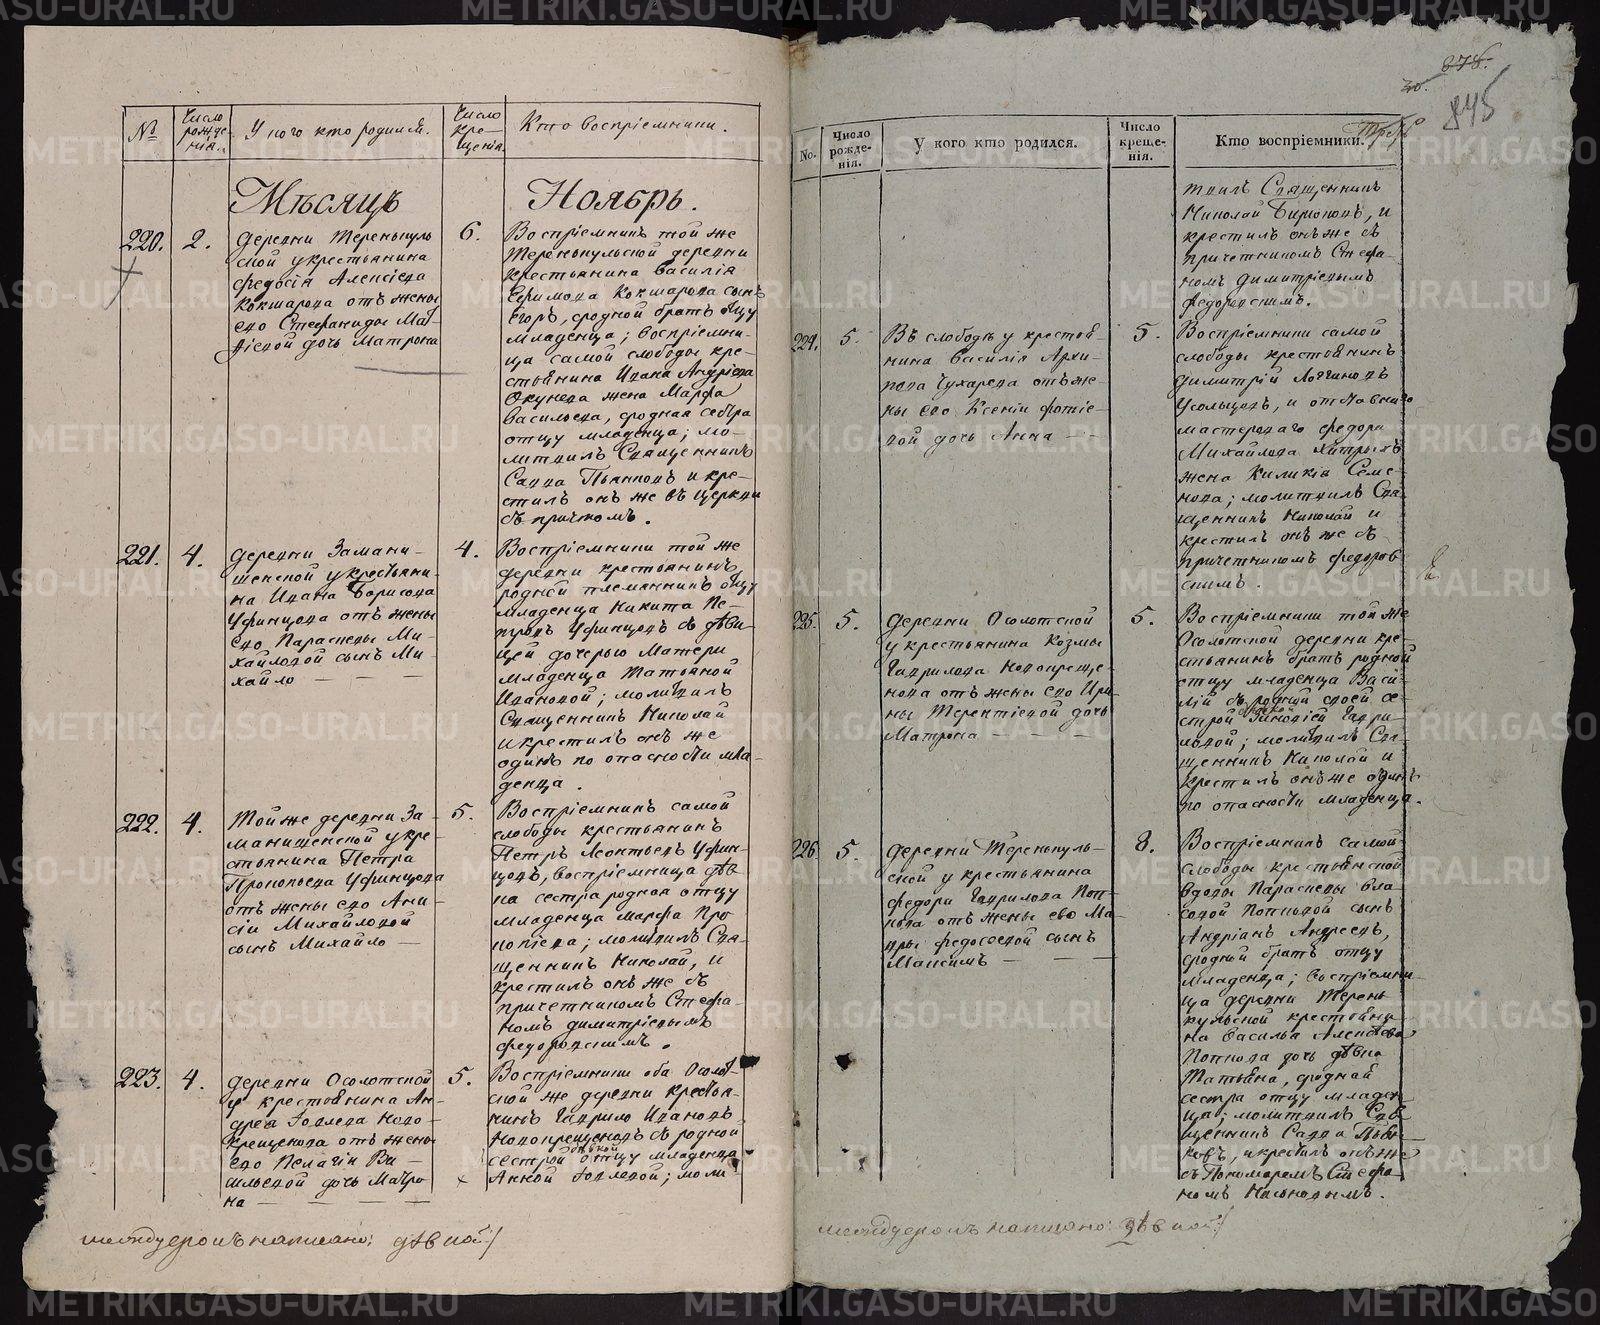 №
Число рожде-нія.
У кого кто родился.
Число кре-щенія.
Кто воспріемники.
Мѣсяцъ Ноябрь.
220.
2.
Деревни Теренькуль
ской у крестьянина
Федосія Алексіева
Кокшарова отъ жены
его Стефаниды Мат-
ѳіевой дочь Матрона
6.
Воспріемникъ той же
Теренькульской деревни
крестьянина Василія
Ефимова Кокшарова сынъ
Егоръ, сродной братъ отцу
младенца; воспріемни-
ца самой слободы кре-
стьянина Ивана Андріева
Окунева жена Марѳа
Васильева, сродная сестра
отцу младенца; мо-
литвилъ Священникъ
Савва Пьянковъ и кре-
стилъ онъ же въ церкви
съ причтомъ.
221.
4.
Деревни Замани-
шенской у крестьяни-
на Ивана Борисова
Уфинцова отъ жены
его Параскевы Ми-
хайловой сынъ Ми-
хайло
4.
Воспріемники той же
деревни крестьянинъ
родной племянникъ отцу
младенца Никита Пе-
тровъ Уфинцовъ съ дѣви-
цей дочерью Матери
младенца Татьяной
Ивановой; молитвилъ
Священникъ Николай
и крестилъ онъ же
одинъ по опасности мла-
денца.
222.
4.
Той же деревни За-
манишенской у кре-
стьянина Петра
Прокопьева Уфинцова
отъ жены его Ани-
сіи Михайловой
сынъ Михайло
5.
Воспріемникъ самой
слободы крестьянинъ
Петръ Леонтьевъ Уфин-
цовъ, воспріемница дѣв-
ка сестра родная отцу
младенца Марѳа Про
копіева; молитвилъ Свя-
щенникъ Николай, и
крестилъ онъ же съ
причетникомъ Стефа-
номъ Димитріевымъ
Федоровскимъ.
223.
4.
Деревни Осолотской
у крестьянина Ан-
дрея Іовлева Ново-
крещенова отъ жены
его Пелагіи Ва-
сильевой дочь Матро
на
5.
Воспріемники оба Осолот-
ской же деревни крестья-
нинъ Гаврило Ивановъ
Новокрещеновъ съ родной
сестрой дѣвкой отцу младенца
Анной Іовлевой; моли-
между строкъ написано: дѣвкой:/
878.
845
No.
Число рожде-нія.
У кого кто родился.
Число креще-нія.
Кто воспріемники.
твилъ Священникъ
Николай Бирюковъ, и
крестилъ онъ же съ
причетникомъ Стефа-
номъ Димитріевымъ
Федоровскимъ.
224.
5.
Въ слободѣ у крестья-
нина Василія Архи-
пова Чухарева отъ же-
ны его Ксеніи Фотіе-
вой дочь Анна
5.
Воспріемники самой
слободы крестьянинъ
Димитрій Логгиновъ
Усольцовъ, и отставнаго
мастероваго Федора
Михайлова Хитрыхъ
жена Киликія Семе-
нова; молитвилъ Свя-
щенникъ Николай и
крестилъ онъ же съ
причетникомъ Федоров
скимъ.
225.
5.
Деревни Осолотской
у крестьянина Козмы
Гаврилова Новокреще-
нова отъ жены его Ири-
ны Терентіевой дочь
Матрона
5.
Воспріемники той же
Осолотской деревни кре-
стьянинъ братъ родной
отцу младенца Васи-
лій съ родной своей се-
строй дѣвкой Зиновіей Гаври-
ловой; молитвилъ Свя-
щенникъ Николай и
крестилъ онъ же одинъ
по опасности младенца.
226.
5.
Деревни Теренькуль-
ской у крестьянина
Федора Гаврилова Поп-
кова отъ жены его Ма-
вры Федосеевой сынъ
Максимъ
8.
Воспріемникъ самой
слободы крестьянской
вдовы Параскевы Вла-
совой Попковой сынъ
Андріанъ Андреевъ,
сродной братъ отцу
младенца; воспріемни-
ца деревни Терень
кульской крестьяни-
на Василья Алексѣева
Попкова дочь дѣвка
Татьяна, сродная
сестра отцу младен-
ца; молитвилъ Свя-
щенникъ Савва Пьян-
ковъ, и крестилъ онъ же
съ Пономаремъ Стефа-
номъ
между строкъ написано: дѣвкой:/
METRIKI.GASO-URAL.RU